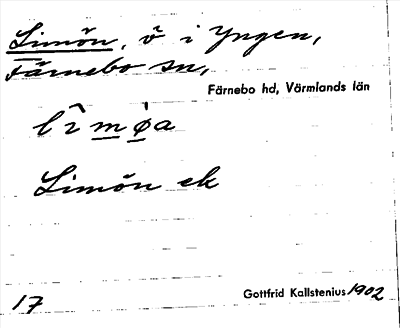 Limön, ö i Yngen,
Färnebo sn,
Färnebo hd, Värmlands län
lìmø̀a
Limön ek
17
Gottfrid Kallstenius 1902